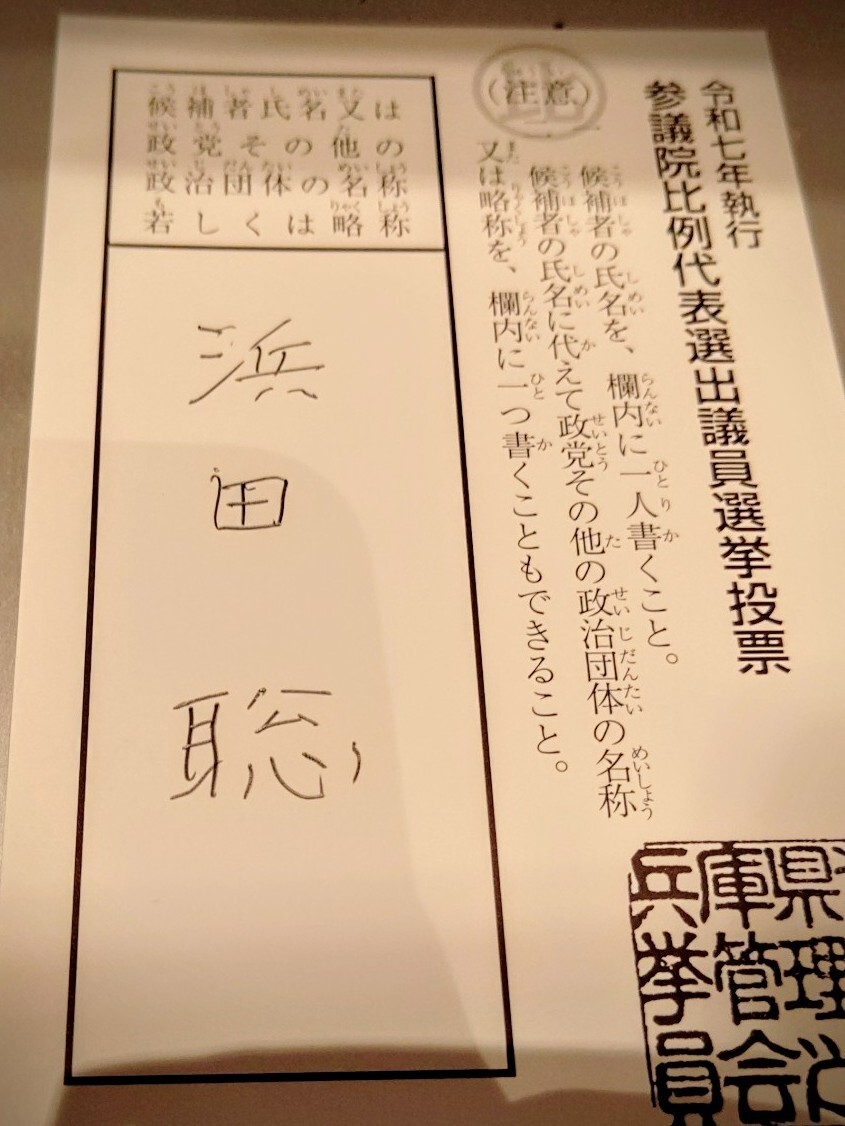 令和七年執行
参議院比例代表選出議員選挙投票
(注意)
一 候補者の氏名を、欄内に一人書くこと。
二 候補者の氏名に代えて政党その他の政治団体の名称
又は略称を、欄内に一つ書くこともできること。
候補者氏名又は
政党その他の
政治団体の名称
若しくは略称
浜田聡
兵庫県
挙管理
員会